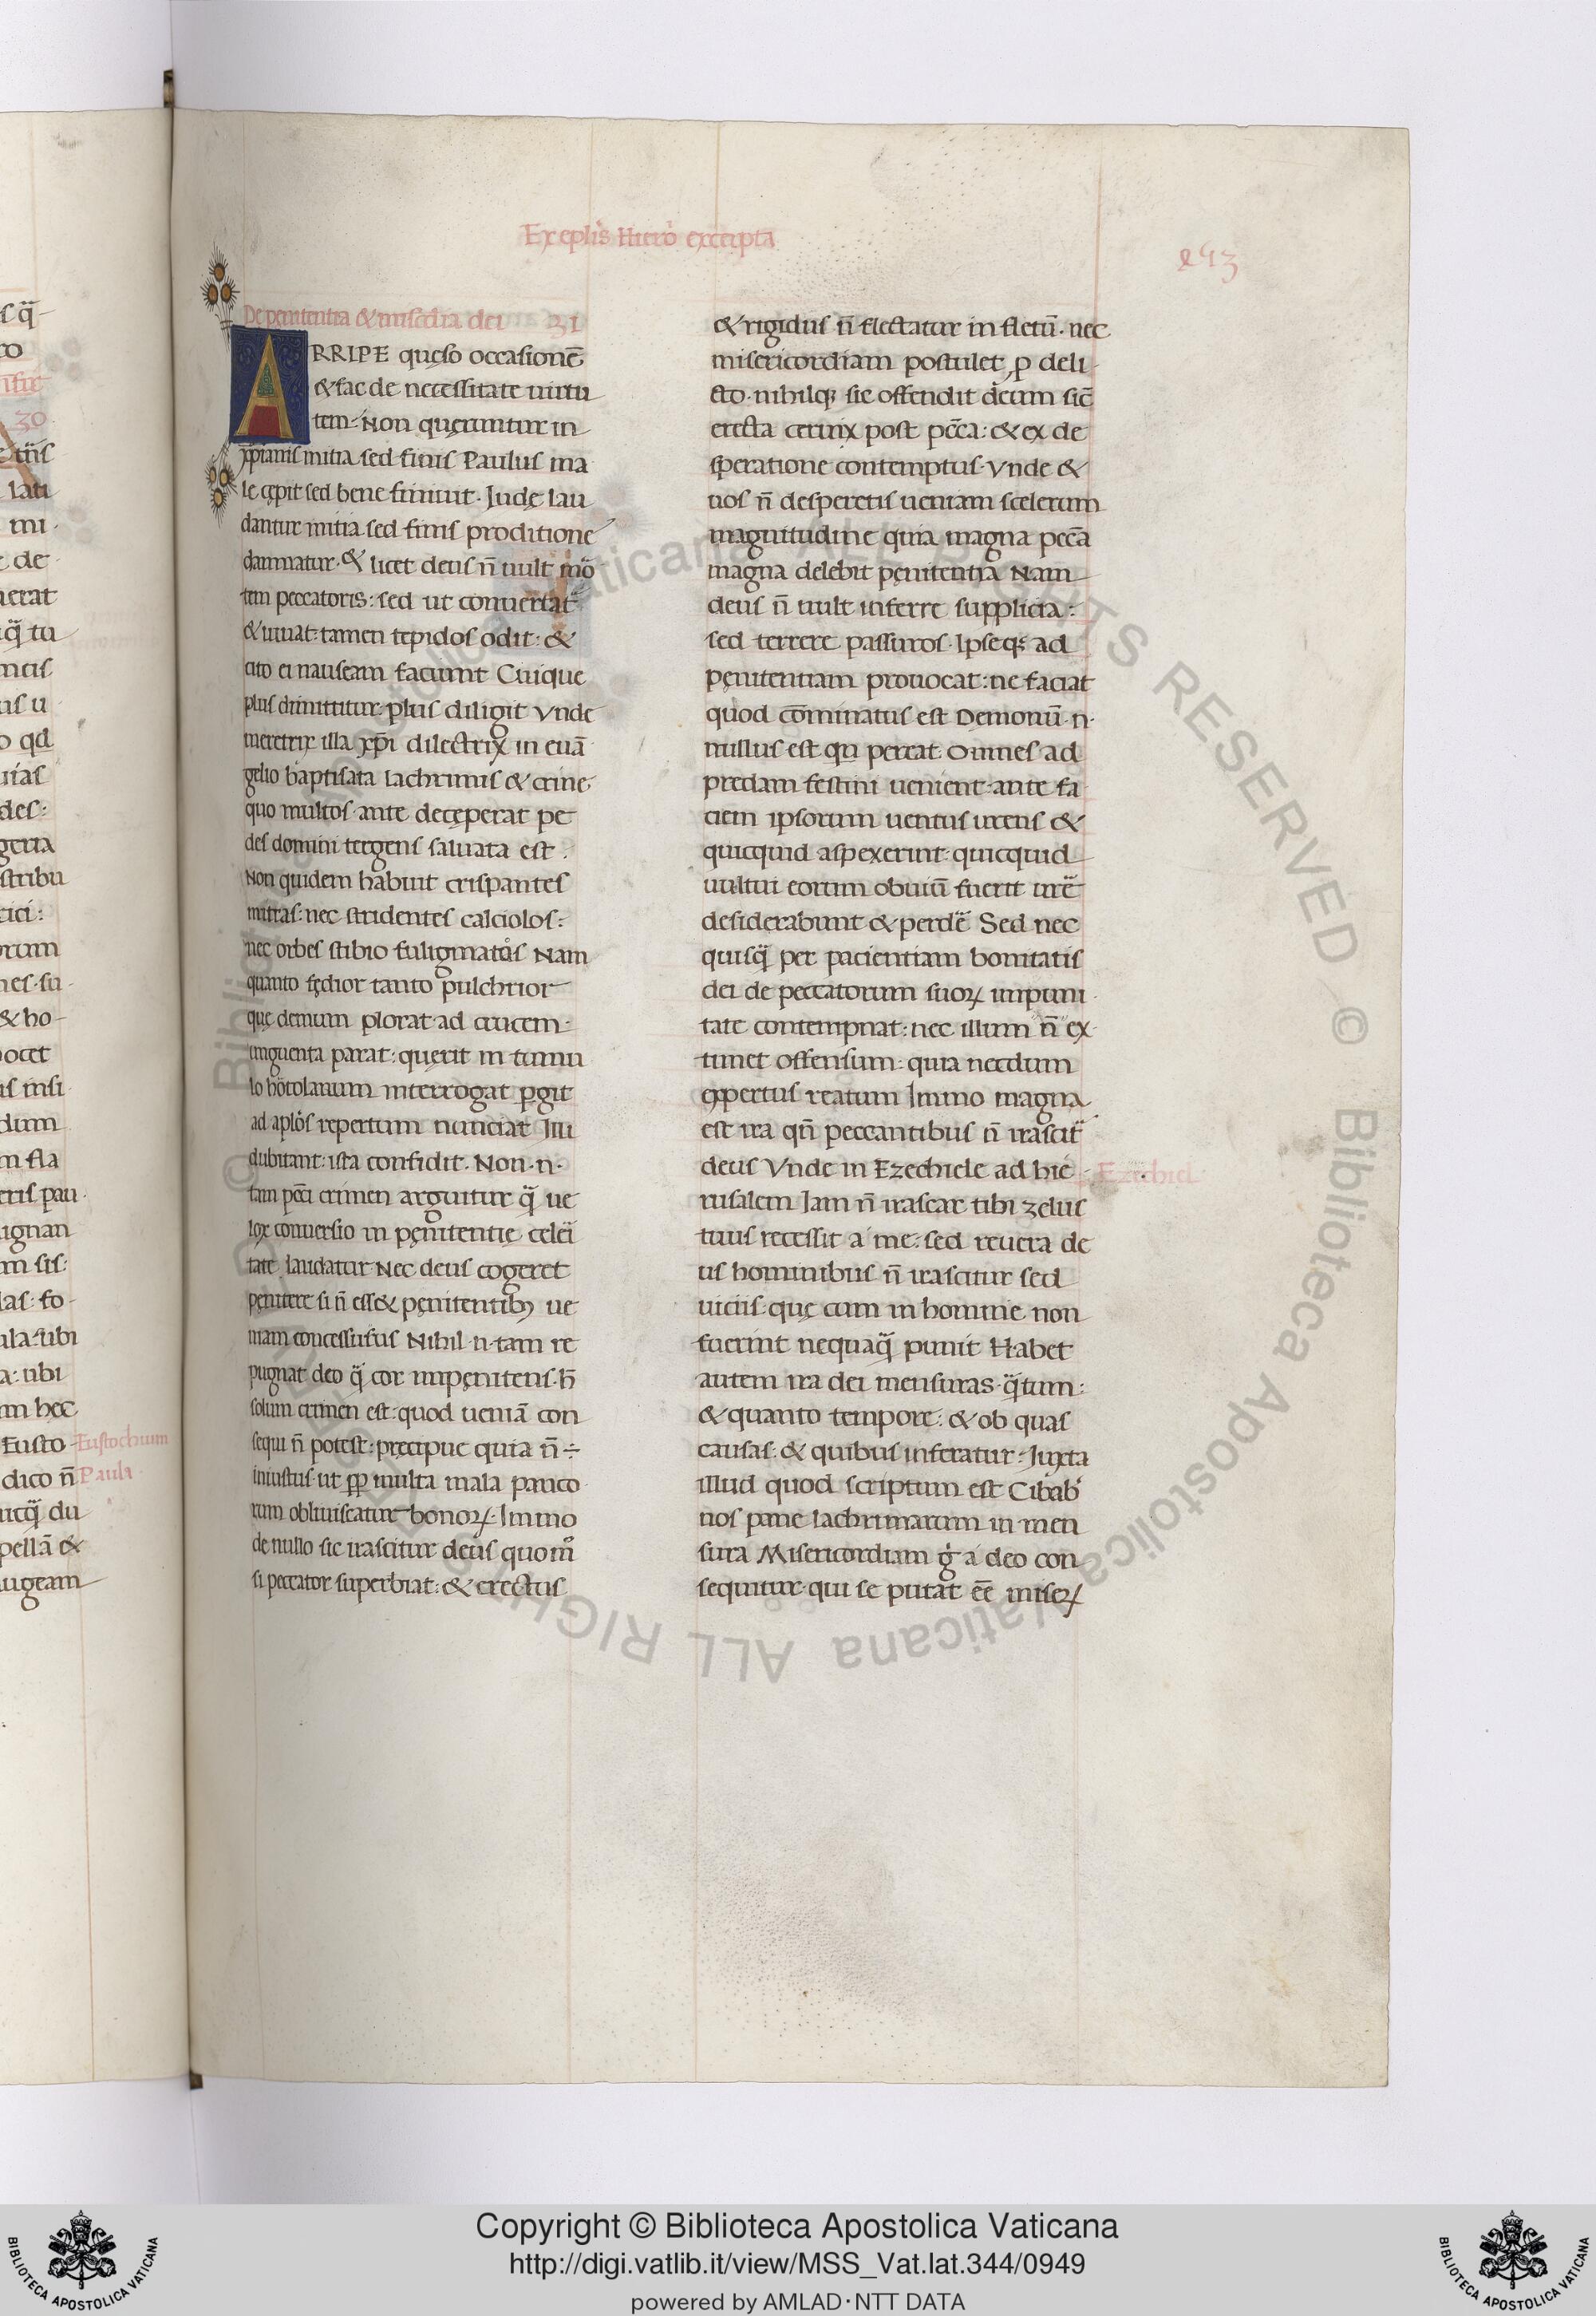 Ex eplis Hiero excerpta
243
De penitentia & misedia dei 31
ARRIPE queso occasionē
& fac de necessitate uirtu
tem· Non queruntur in
xpianis initia sed finis Paulus ma
le cepit sed bene finiuit· Iudę lau
dantur initia sed finis proditione
damnatur· & licet deus n̄ uult mor
tem peccatoris: sed ut conuertat
& uiuat: tamen tepidos odit: &
cito ei nauseam faciunt Cuique
plus dimittitur plus diligit Vnde
meretrix illa xp̄i dilectrix in euā
gelio baptisata lachrimis & crine
quo multos ante deceperat pe
des domini tergens saluata est:
Non quidem habuit crispantes
mitras: nec stridentes calciolos:
nec orbes stibio fuliginatos Nam
quanto fędior tanto pulchrior
quę demum plorat ad crucem·
unguenta parat: querit in tumu
lo hortolanum interrogat pergit
ad aplos repertum nunciat Illi
dubitant: ista confidit· Non·n·
tam peccī crimen arguitur q̄ ue
lox conuersio in pęnitentię celeri
tate laudatur Nec deus cogeret
pęnitere si n̄ esset pęnitentibꝰ ue
niam concessurus Nihil·n·tam re
pugnat deo q̄ cor inpęnitens· h̄
solum crimen est: quod ueniā con
sequi n̄ potest: pręcipue quia n̄ ÷
iniustus ut pp multa mala pauco
rum obliuiscatur bonoꝝ· Immo
de nullo sic irascitur deus quom̄
si peccator superbiat: & erectus
& rigidus n̄ flectatur in fletū· nec
misericordiam postulet p deli
cto· nihilqꝫ sic offendit deum sic̄
erecta ceruix post pēca: & ex de
speratione contemptus· Vnde &
uos n̄ desperetis ueniam scelerum
magnitudine quia magna pecā
magna delebit pęnitentia Nam
deus n̄ uult inferre supplicia:
sed terrere passuros· Ipseqꝫ ad
pęnitentiam prouocat: ne faciat
quod cōminatus est Demonū·n·
nullus est qui pereat· Omnes ad
predam festini uenient· ante fa
ciem ipsorum uentus urens &
quicquid aspexerint: quicquid
uultui eorum obuiū fuerit urē
desiderabunt & perdē Sed nec
quisq̄ per pacientiam bonitatis
dei de peccatorum suoꝝ impuni
tate contempnat: nec illum n̄ ex
timet offensum: quia necdum
expertus reatum Immo magna
est ira qn̄ peccantibus n̄ irascit̄
deus Vnde in Ezechiele ad hie
Ezechiel
rusalem Iam n̄ irascar tibi zelus
tuus recessit a me: sed reuera de
us hominibus n̄ irascitur sed
uiciis: quę cum in homine non
fuerint nequaq̄ punit Habet
autem ira dei mensuras· q̄tum:
& quanto tempore: & ob quas
causas: & quibus inferatur· Iuxta
illud quod scriptum est Cibab
nos pane lachrimarum in men
sura Misericordiam g̊ a deo con
sequitur· qui se putat eē miseꝝ
is q̄
Eustochium
Paula
30
lati
mi·
de
nerat
q̄ tu
ncis
us u
o qd
des:
geria
stribu
tici:
orum
& ho
ocet
dum
m fla
pau·
ugnan
m sis:
las: fo
ula· ubi
a: ubi
m hęc
Eusto
dico n̄
icq̄ du
pellā &
augeam
© Biblioteca Apostolica Vaticana ALL RIGHTS RESERVED © Biblioteca Apostolica Vaticana ALL RIGHTS RESERVED
Copyright © Biblioteca Apostolica Vaticana
http://digi.vatlib.it/view/MSS_Vat.lat.344/0949
powered by AMLAD·NTT DATA
BIBLIOTECA APOSTOLICA VATICANA
BIBLIOTECA APOSTOLICA VATICANA